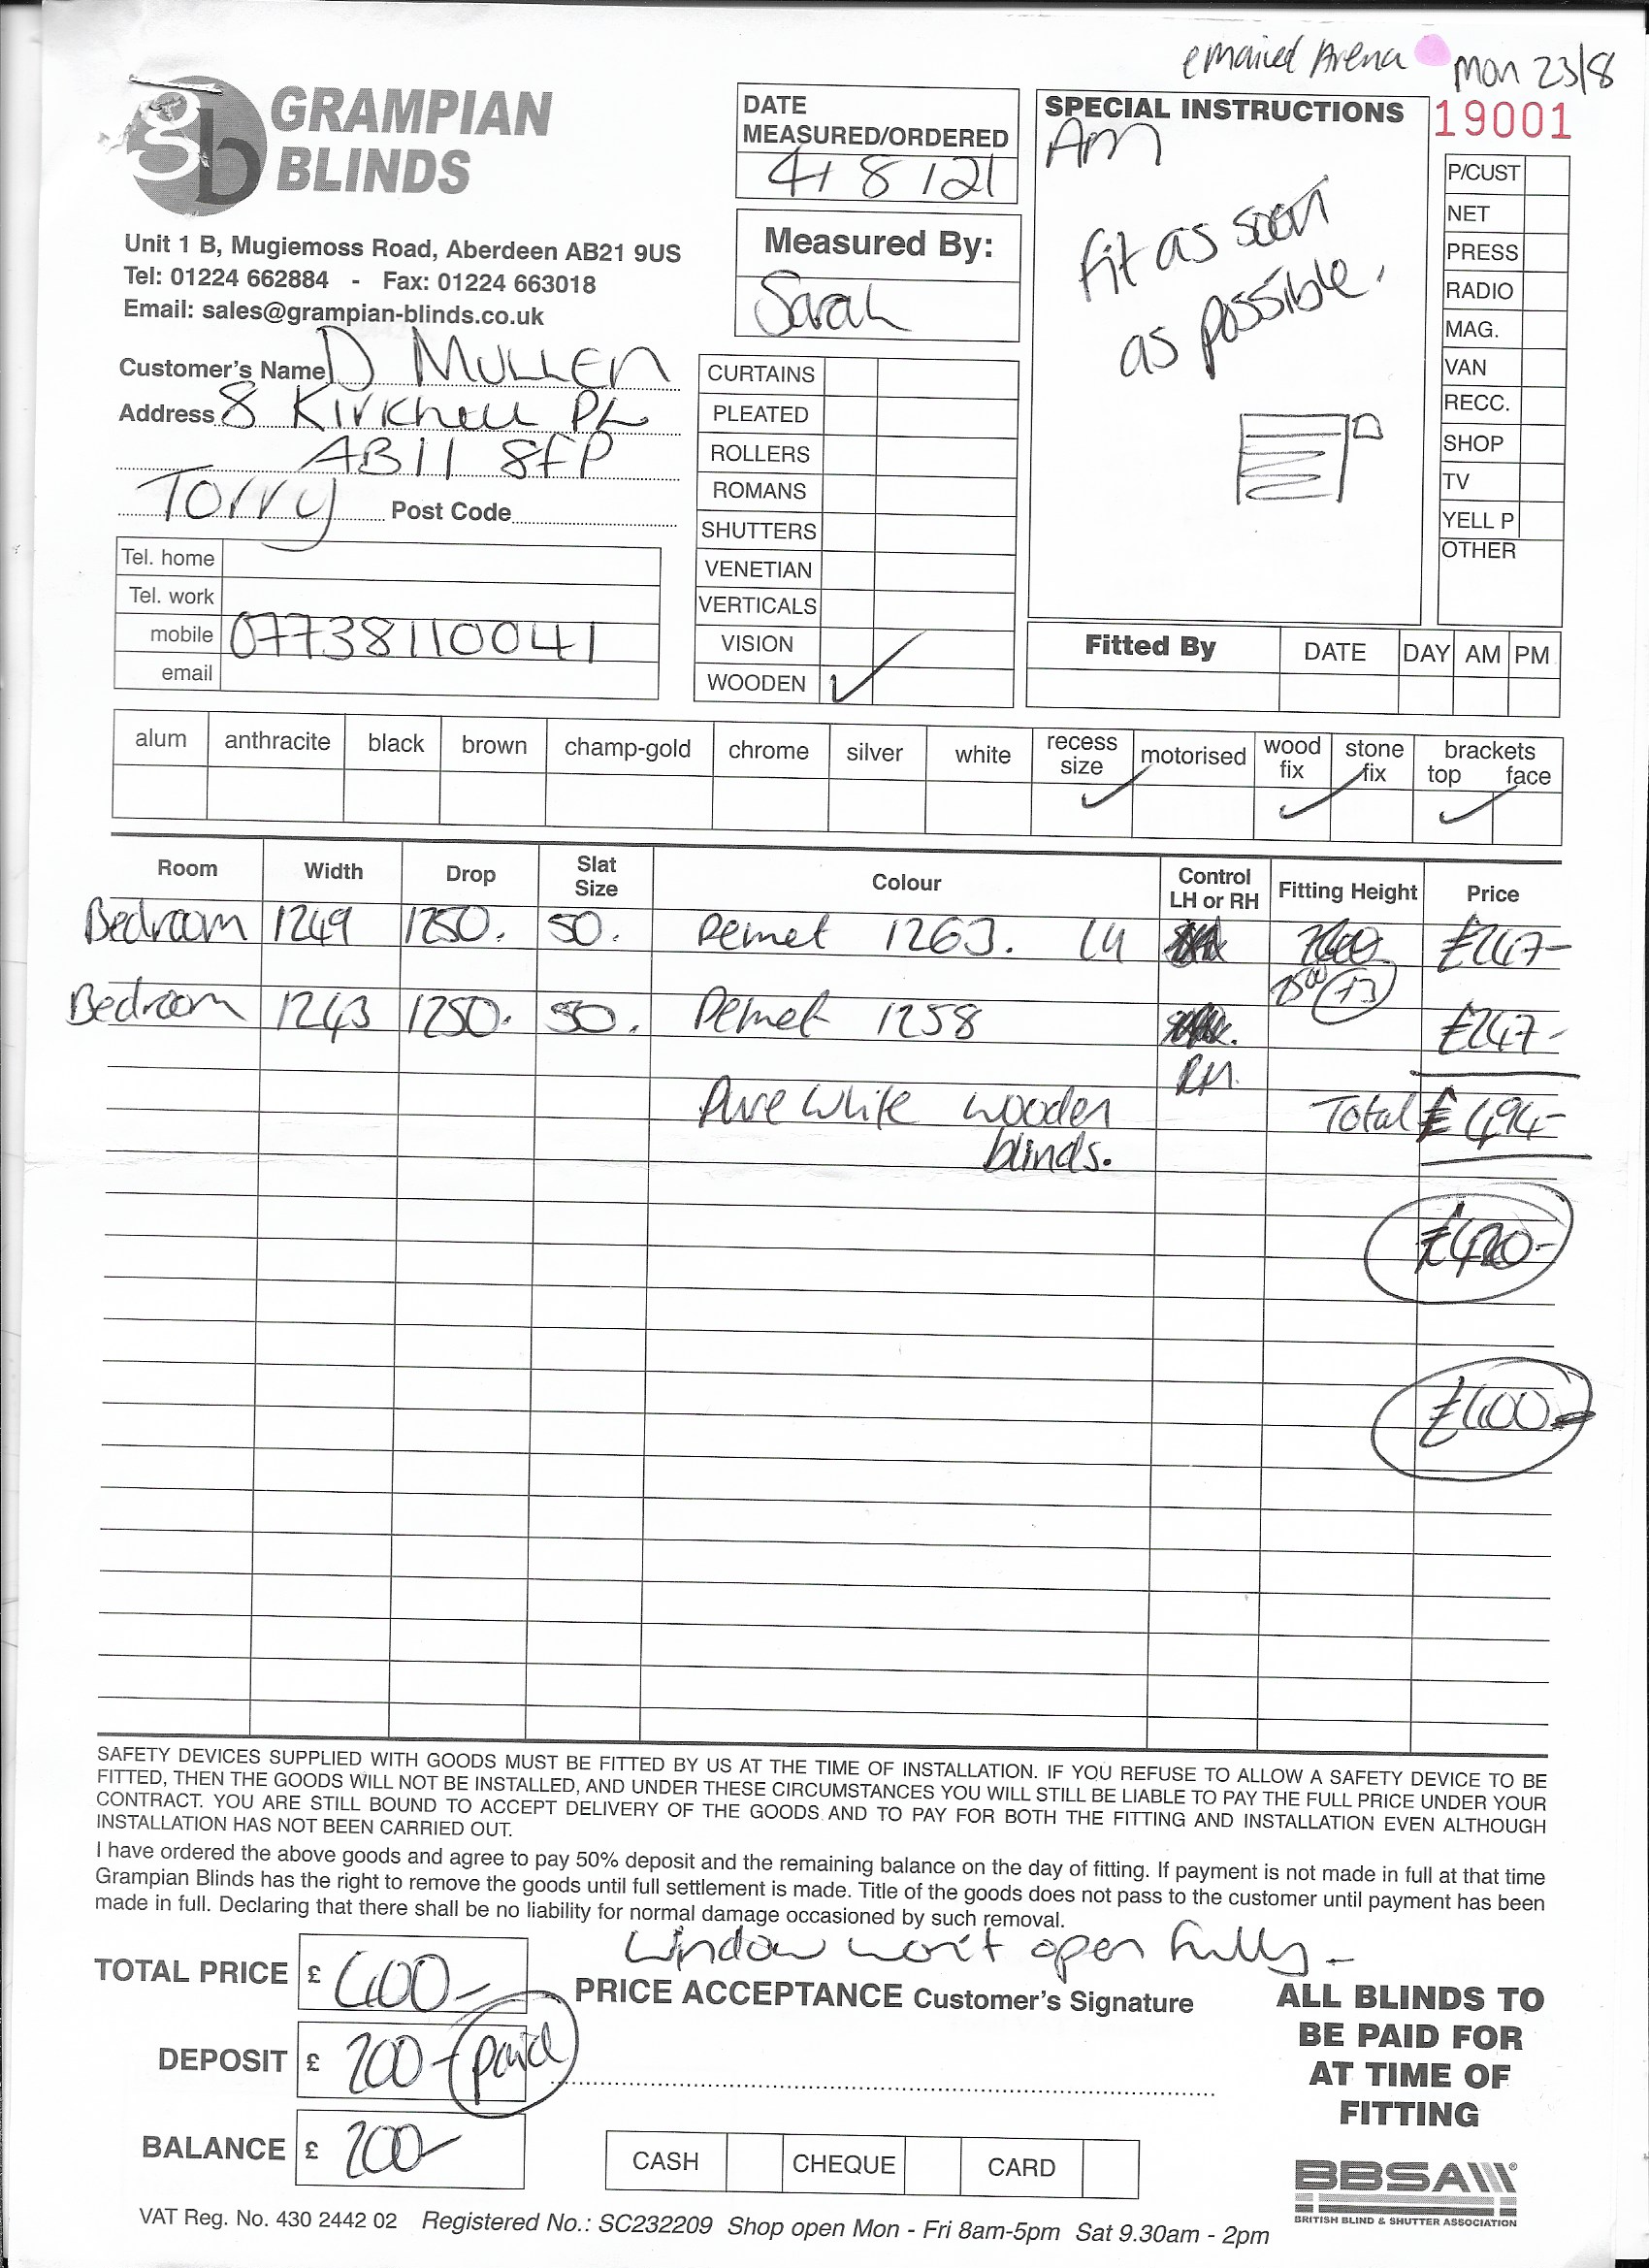 emailed Arena Mon 23/8
GRAMPIAN
BLINDS
Unit 1 B, Mugiemoss Road, Aberdeen AB21 9US
Tel: 01224 662884 - Fax: 01224 663018
Email: sales@grampian-blinds.co.uk
DATE
MEASURED/ORDERED
4/8/21
Measured By:
Sarah
SPECIAL INSTRUCTIONS
Am
fit as soon
as possible.
19001
P/CUST
NET
PRESS
RADIO
MAG.
VAN
RECC.
SHOP
TV
YELL P
OTHER
Customer's Name D MULLEN
Address 8 Kirkhill PL
AB11 8FP
Torry Post Code
Tel. home
Tel. work
mobile 07738110041
email
CURTAINS
PLEATED
ROLLERS
ROMANS
SHUTTERS
VENETIAN
VERTICALS
VISION
WOODEN
Fitted By DATE DAY AM PM
alum anthracite black brown champ-gold chrome silver white recess size motorised wood fix stone fix brackets top face
Room Width Drop Slat Size Colour Control LH or RH Fitting Height Price
Bedroom 1249 1250. 50. Pelmet 1263. LH £247-
Bedroom 1243 1250. 50. Pelmet 1258 £247-
RH.
Pure White wooden Total £494-
blinds.
£420-
£400-
SAFETY DEVICES SUPPLIED WITH GOODS MUST BE FITTED BY US AT THE TIME OF INSTALLATION. IF YOU REFUSE TO ALLOW A SAFETY DEVICE TO BE
FITTED, THEN THE GOODS WILL NOT BE INSTALLED, AND UNDER THESE CIRCUMSTANCES YOU WILL STILL BE LIABLE TO PAY THE FULL PRICE UNDER YOUR
CONTRACT. YOU ARE STILL BOUND TO ACCEPT DELIVERY OF THE GOODS AND TO PAY FOR BOTH THE FITTING AND INSTALLATION EVEN ALTHOUGH
INSTALLATION HAS NOT BEEN CARRIED OUT.
I have ordered the above goods and agree to pay 50% deposit and the remaining balance on the day of fitting. If payment is not made in full at that time
Grampian Blinds has the right to remove the goods until full settlement is made. Title of the goods does not pass to the customer until payment has been
made in full. Declaring that there shall be no liability for normal damage occasioned by such removal.
Window won't open fully -
TOTAL PRICE £ 400-
PRICE ACCEPTANCE Customer's Signature
DEPOSIT £ 200- paid
BALANCE £ 200-
CASH CHEQUE CARD
ALL BLINDS TO
BE PAID FOR
AT TIME OF
FITTING
BBSA
BRITISH BLIND & SHUTTER ASSOCIATION
VAT Reg. No. 430 2442 02 Registered No.: SC232209 Shop open Mon - Fri 8am-5pm Sat 9.30am - 2pm